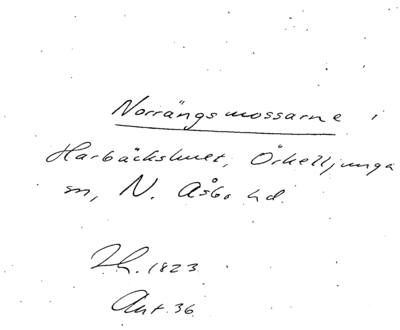 Norrängsmossarne i
Harbäckshult, Örkelljunga
sn, N. Åsbo hd.
Th. 1823
Ant. 36